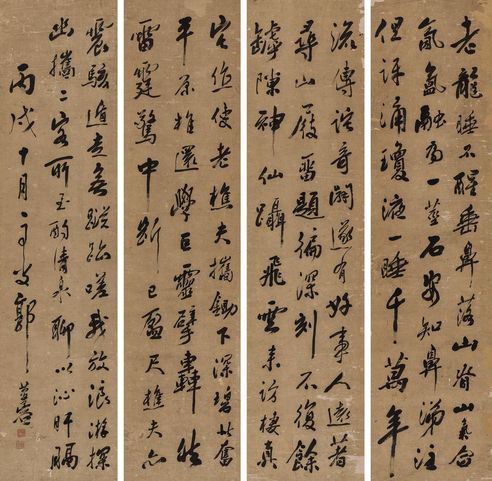 老龍睡不醒垂鼻落山脊山氣白
氤氳融為一莖石安知鼻涕注
但訝涌瓊液一睡千萬年
流傳說奇澗遂有好事人遠著
尋山屐留題徧深刻不復餘
罅隙神仙躡飛雲來訪棲真
宅位使老樵夫攜鋤下深碧奮
平原椎還學巨靈擘轟然
雷霆驚中斷已盈尺樵夫亦
震駭遁走無蹤跡嗟我放浪游探
幽攜二客所至酌清泉聊以沁肝膈
丙戌十月